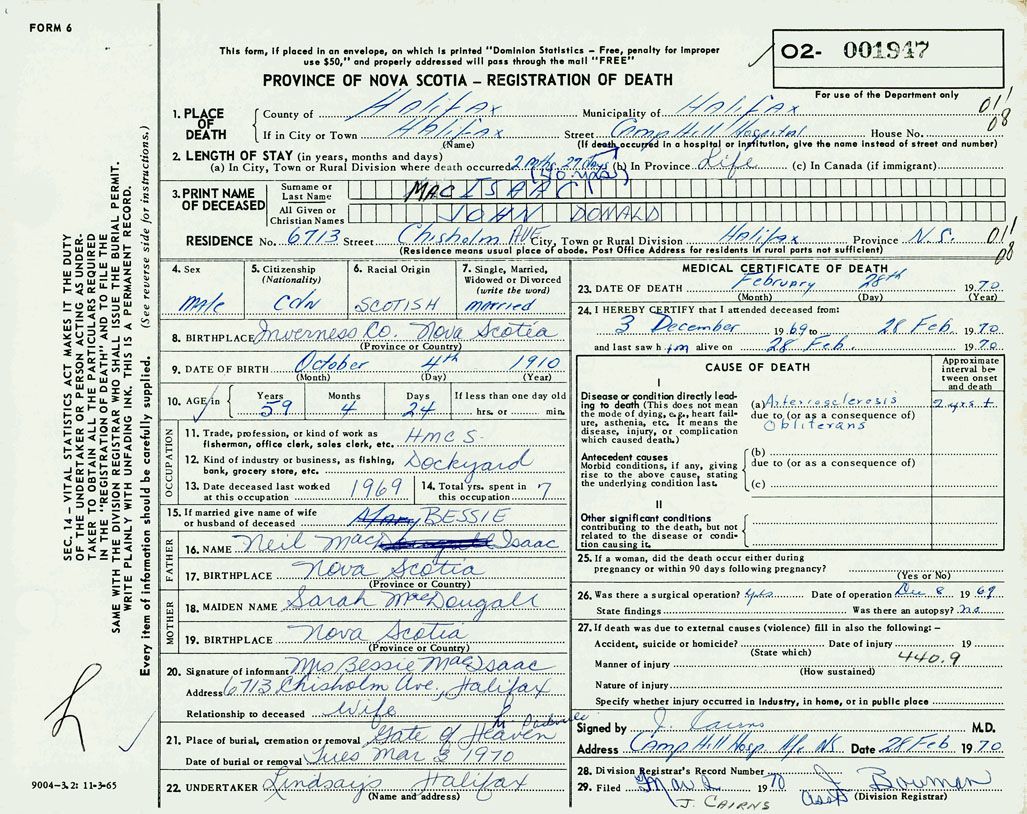 FORM 6
This form, if placed in an envelope, on which is printed "Dominion Statistics – Free, penalty for improper
use $50," and properly addressed will pass through the mail "FREE"
PROVINCE OF NOVA SCOTIA – REGISTRATION OF DEATH
O2- 001947
For use of the Department only
SEC. 14 – VITAL STATISTICS ACT MAKES IT THE DUTY
OF THE UNDERTAKER OR PERSON ACTING AS UNDER-
TAKER TO OBTAIN ALL THE PARTICULARS REQUIRED
IN THE "REGISTRATION OF DEATH" AND TO FILE THE
SAME WITH THE DIVISION REGISTRAR WHO SHALL ISSUE THE BURIAL PERMIT.
WRITE PLAINLY WITH UNFADING INK. THIS IS A PERMANENT RECORD.
Every item of information should be carefully supplied. (See reverse side for instructions.)
1. PLACE OF DEATH
County of Halifax Municipality of Halifax 011
If in City or Town Halifax Street Camp Hill Hospital House No. 08
(Name) (If death occurred in a hospital or institution, give the name instead of street and number)
2. LENGTH OF STAY (in years, months and days)
(a) In City, Town or Rural Division where death occurred 2 mths 27 days (b) In Province Life (c) In Canada (if immigrant)
(40 yrs)
3. PRINT NAME OF DECEASED
Surname or Last Name MACISAAC
All Given or Christian Names JOHN DONALD
RESIDENCE No. 6713 Street Chisholm AVE City, Town or Rural Division Halifax Province N.S. 011
(Residence means usual place of abode. Post Office Address for residents in rural parts not sufficient) 08
4. Sex Male
5. Citizenship (Nationality) CDN
6. Racial Origin SCOTISH
7. Single, Married, Widowed or Divorced (write the word) married
8. BIRTHPLACE Inverness Co. Nova Scotia
(Province or Country)
9. DATE OF BIRTH October 4th 1910
(Month) (Day) (Year)
10. AGE in Years 59 Months 4 Days 24 If less than one day old hrs. or min.
OCCUPATION
11. Trade, profession, or kind of work as fisherman, office clerk, sales clerk, etc. HMCS
12. Kind of industry or business, as fishing, bank, grocery store, etc. Dockyard
13. Date deceased last worked at this occupation 1969
14. Total yrs. spent in this occupation 7
15. If married give name of wife or husband of deceased Mary BESSIE
FATHER
16. NAME Neil Mac Isaac
17. BIRTHPLACE Nova Scotia
(Province or Country)
MOTHER
18. MAIDEN NAME Sarah MacDougall
19. BIRTHPLACE Nova Scotia
(Province or Country)
20. Signature of informant Mrs Bessie MacIsaac
Address 6713 Chisholm Ave, Halifax
Relationship to deceased Wife
21. Place of burial, cremation or removal Gate of Heaven
Date of burial or removal Tues Mar 3 1970
22. UNDERTAKER Lindsay's Halifax
(Name and address)
9004–3.2: 11-3-65
MEDICAL CERTIFICATE OF DEATH
23. DATE OF DEATH February 28th 1970
(Month) (Day) (Year)
24. I HEREBY CERTIFY that I attended deceased from:
3 December 1969 to 28 Feb 1970
and last saw him alive on 28 Feb. 1970
CAUSE OF DEATH
Approximate interval between onset and death
I
Disease or condition directly leading to death (This does not mean the mode of dying, e.g., heart failure, asthenia, etc. It means the disease, injury, or complication which caused death.)
(a) Arteriosclerosis 2 yrs +
due to (or as a consequence of)
Obliterans
Antecedent causes
Morbid conditions, if any, giving rise to the above cause, stating the underlying condition last.
(b)
due to (or as a consequence of)
(c)
II
Other significant conditions
contributing to the death, but not related to the disease or condition causing it.
25. If a woman, did the death occur either during
pregnancy or within 90 days following pregnancy?
(Yes or No)
26. Was there a surgical operation? yes Date of operation Dec 8 1969
State findings Was there an autopsy? no
27. If death was due to external causes (violence) fill in also the following: –
Accident, suicide or homicide? Date of injury 19
(State which) 440.9
Manner of injury
(How sustained)
Nature of injury
Specify whether injury occurred in industry, in home, or in public place
Signed by J. Cairns M.D.
Address Camp Hill Hosp. Hfx NS. Date 28 Feb 1970
28. Division Registrar's Record Number
29. Filed Mar 2 1970 J Bowman
J. CAIRNS Asst (Division Registrar)